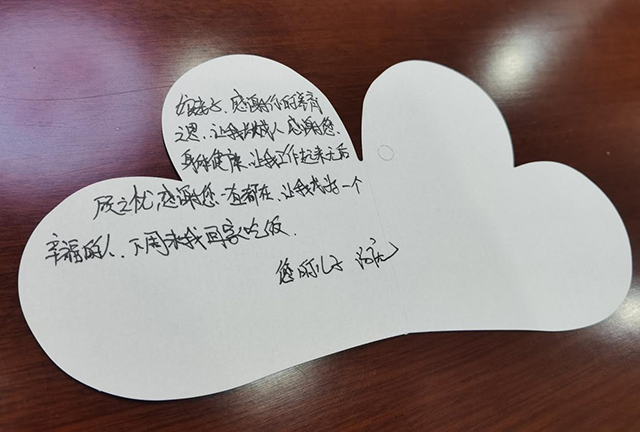 感谢你的养育
之恩，让我长大成人 感谢您
身体健康，让我工作起来无后
顾之忧，感谢您一直都在，让我成为一个
幸福的人，下周末我回家吃饭.
您的儿子